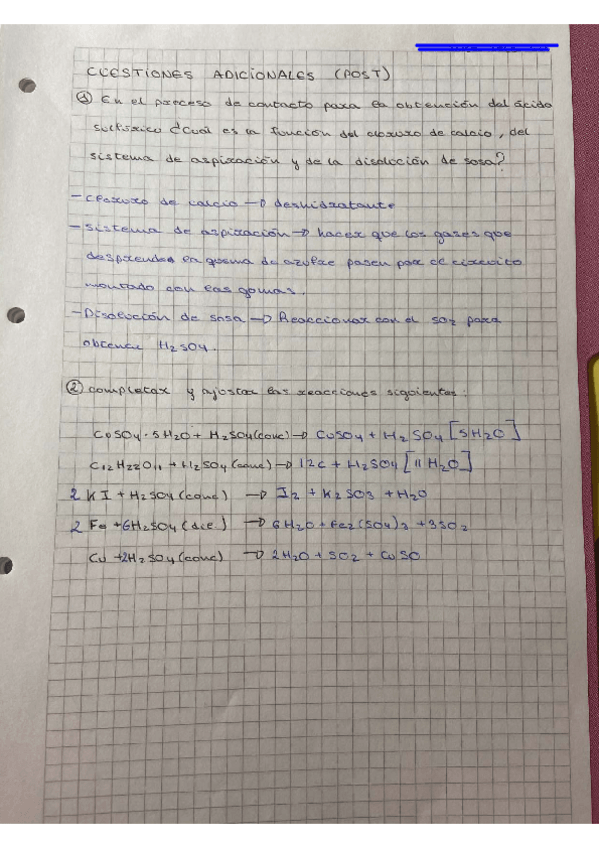 CUESTIONES ADICIONALES (POST)
① En el proceso de contacto para la obtención del ácido
sulfúrico ¿Cuál es la función del cloruro de calcio, del
sistema de aspiración y de la disolución de sosa?
- Cloruro de calcio → deshidratante
- Sistema de aspiración → hacer que los gases que
desprendea en quema de azufre pasen por el circuito
montado con las gomas.
- Disolución de sosa → Reaccionar con el SO2 para
obtener H2SO4.
② Completar y ajustar las reacciones siguientes:
CuSO4·5H2O + H2SO4(conc) → CuSO4 + H2SO4[5H2O]
C12H22O11 + H2SO4(conc) → 12C + H2SO4[11H2O]
2 KI + H2SO4(conc) → I2 + K2SO3 + H2O
2 Fe + 6H2SO4(dil.) → 6H2O + Fe2(SO4)3 + 3SO2
Cu + 2H2SO4(conc) → 2H2O + SO2 + CuSO